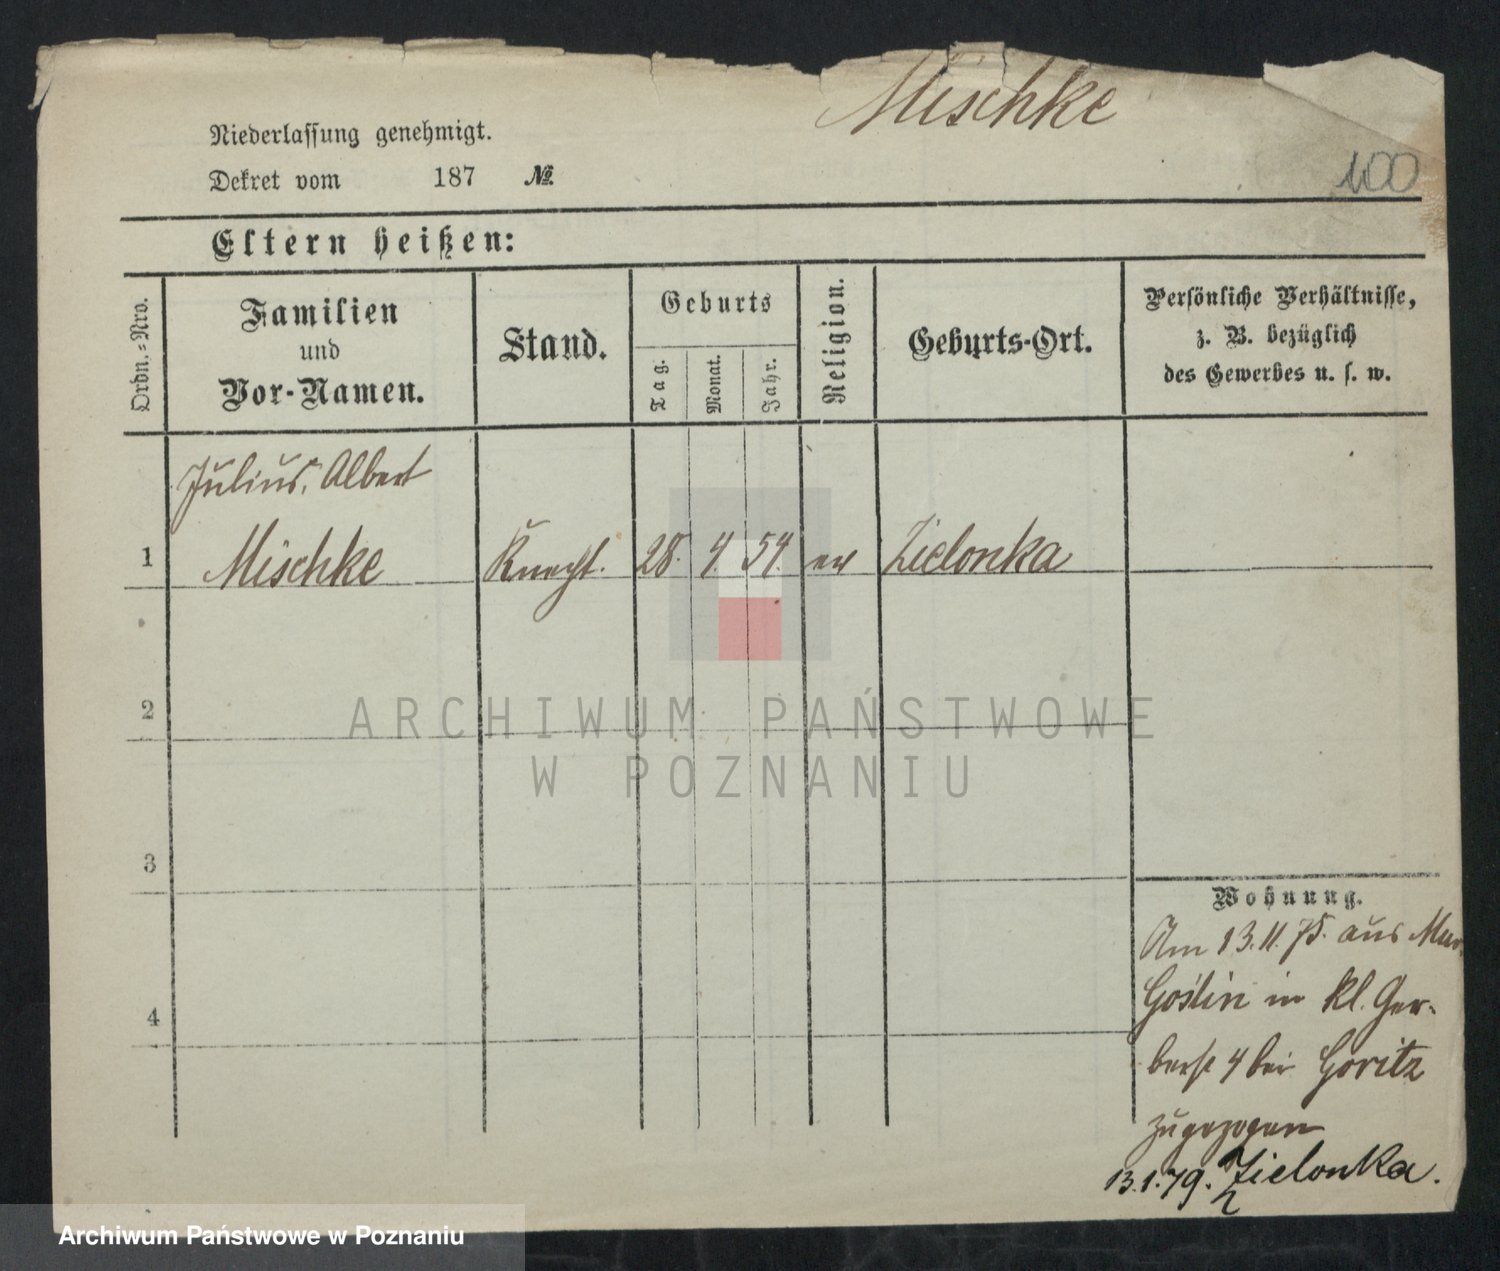 Mischke
Niederlassung genehmigt.
Dekret vom 187 №.
100
Eltern heißen:
Ordn.-Nro.
Familien
und
Vor-Namen.
Stand.
Geburts
Tag.
Monat.
Jahr.
Religion.
Geburts-Ort.
Persönliche Verhältnisse,
z. B. bezüglich
des Gewerbes u. s. w.
Julius, Albert
1 Mischke Knecht. 28. 4. 54. ev Zielonka
2
ARCHIWUM PAŃSTWOWE
W POZNANIU
3
Wohnung.
Am 13.11.75. aus Mur.
Goślin in kl. Ger-
berst 4 bei Goritz
zugezogen
13.1.79. Zielonka.
4
Archiwum Państwowe w Poznaniu